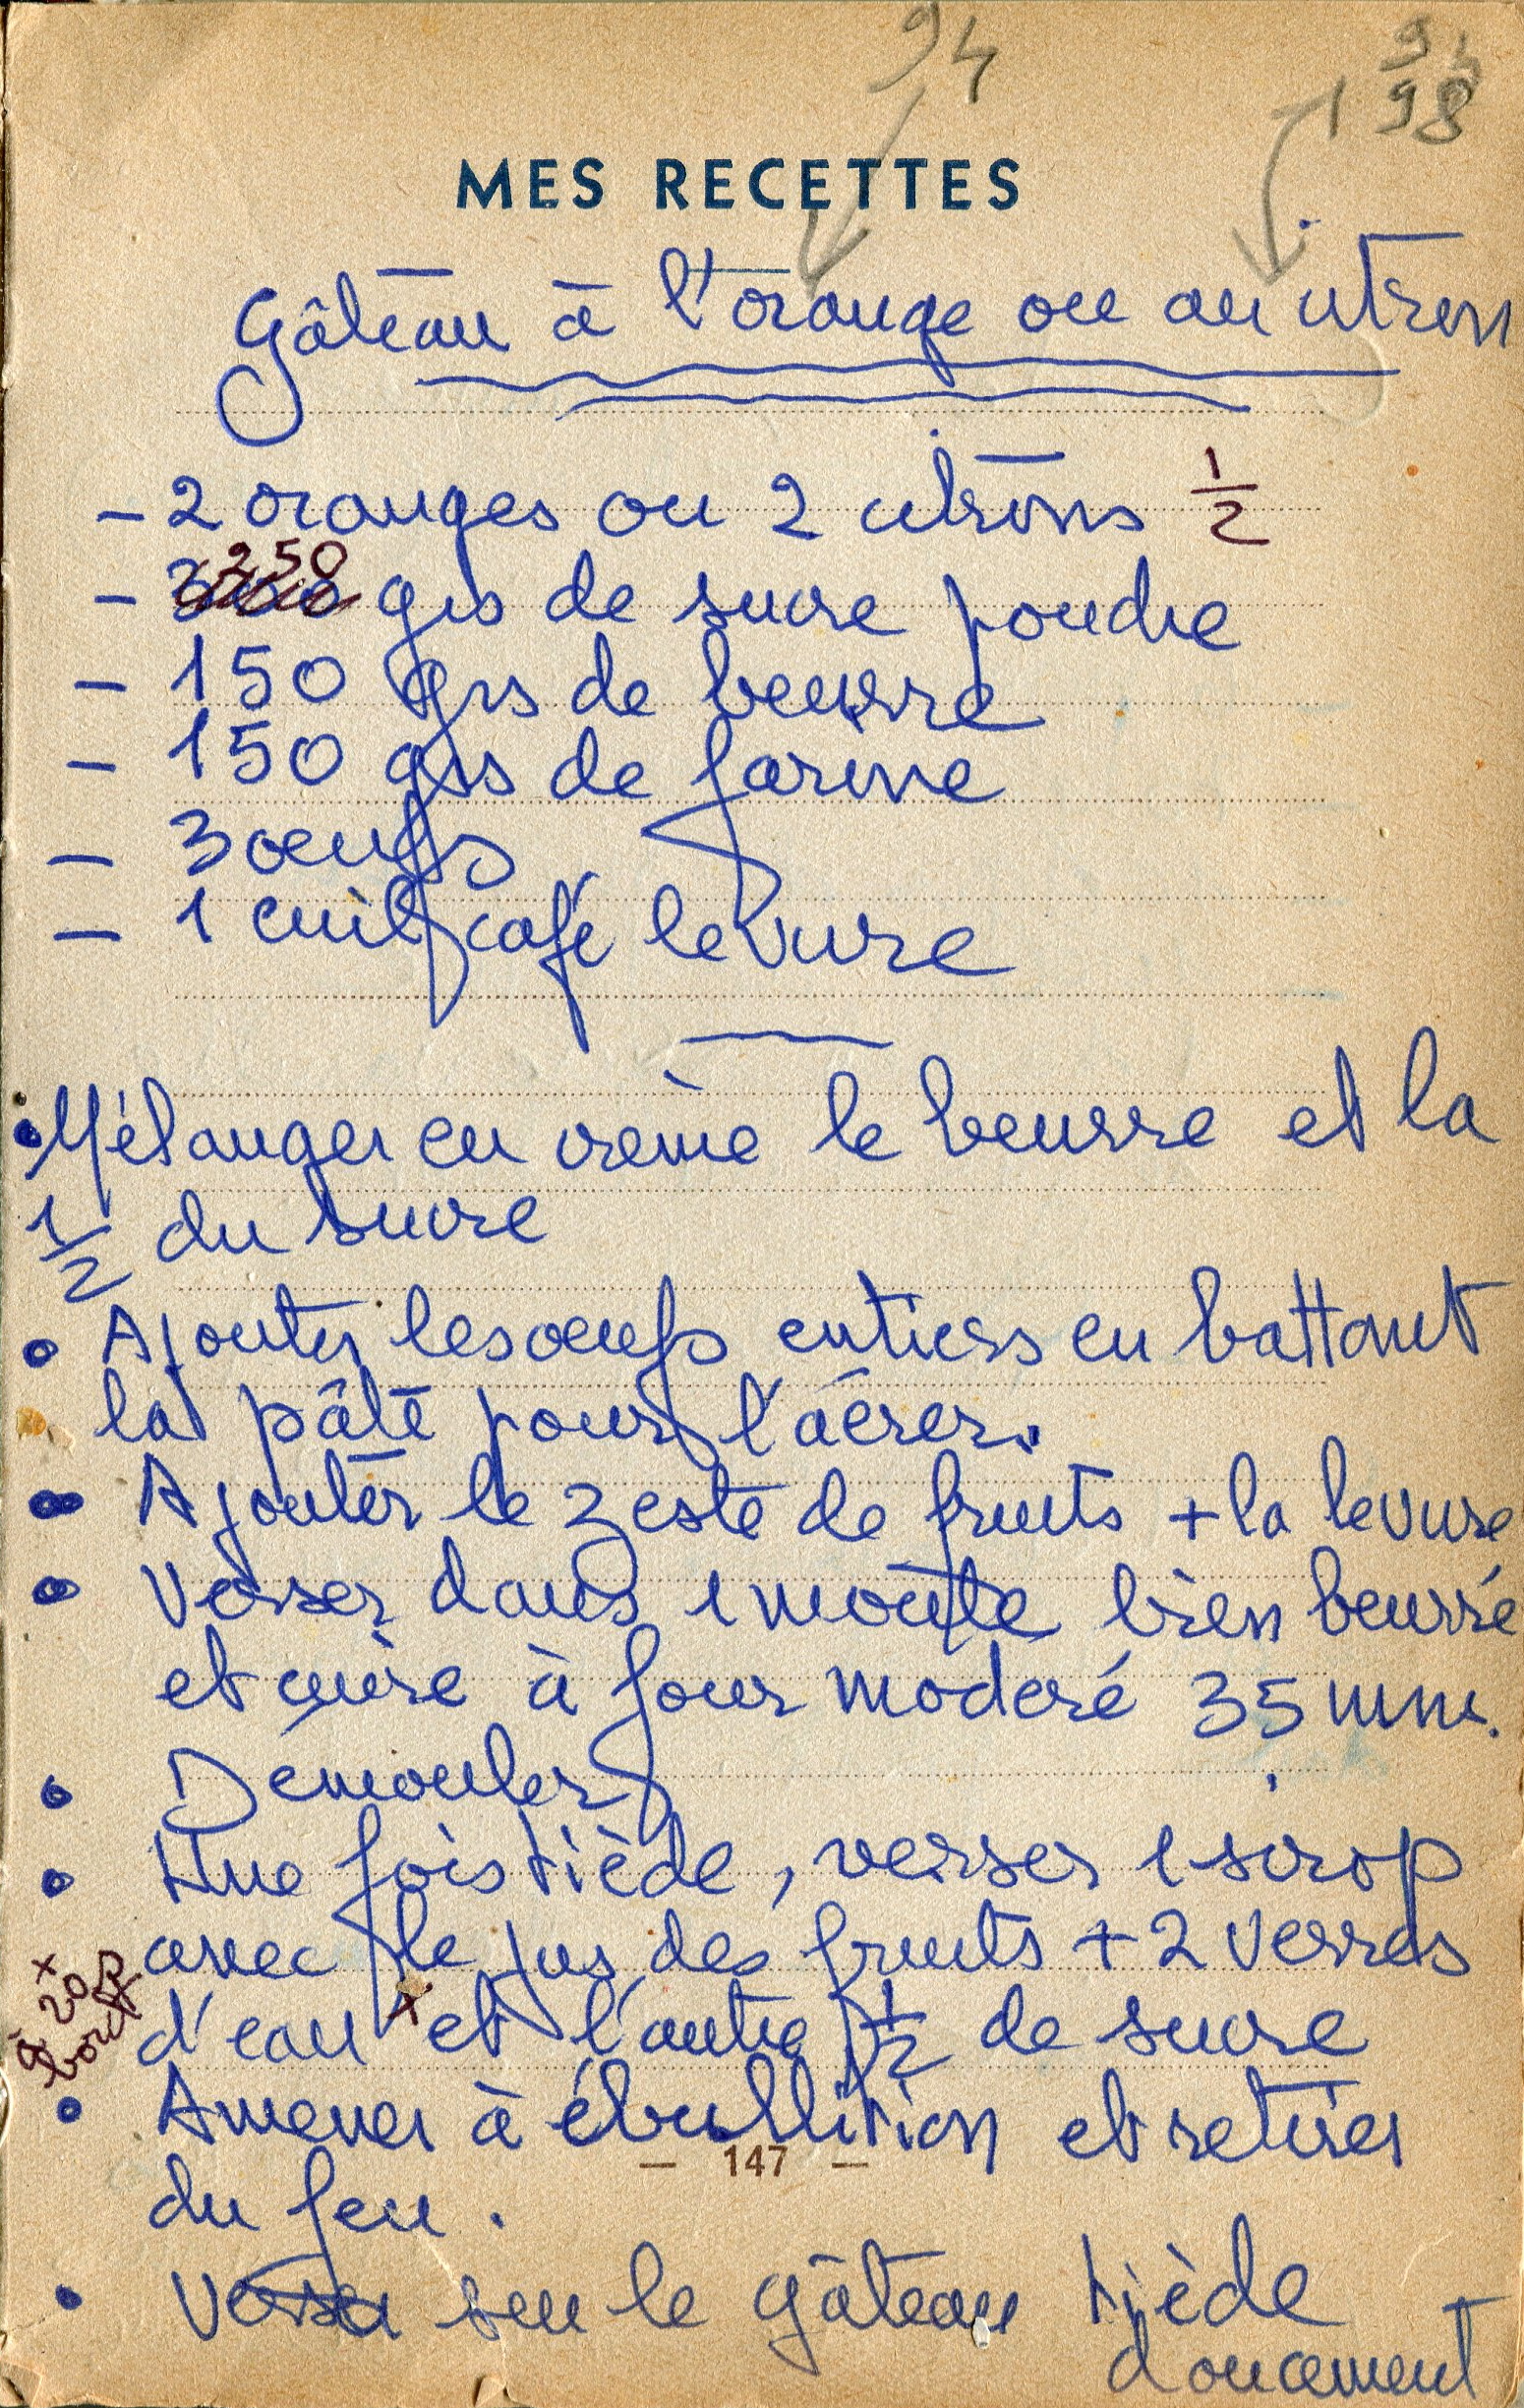 94
94
98
MES RECETTES
Gâteau à l'orange ou au citron
- 2 oranges ou 2 citrons 1/2
- 250 grs de sucre poudre
- 150 grs de beurre
- 150 grs de farine
- 3 oeufs
- 1 cuil café levure
• Mélanger en crème le beurre et la
1/2 du sucre
• Ajouter les oeufs entiers en battant
la pâte pour l'aérer.
• Ajouter le zeste de fruits + la levure
• Verser dans 1 moule bien beurré
et cuire à four moderé 35 mns.
• Démouler
• Une fois tiède, verser 1 sirop
avec le jus des fruits + 2 verres
d'eau x et l'autre 1/2 de sucre
x
à 20
bout
• Amener à ébullition et retirer
du feu.
- 147 -
• Verser sur le gâteau tiède
doucement